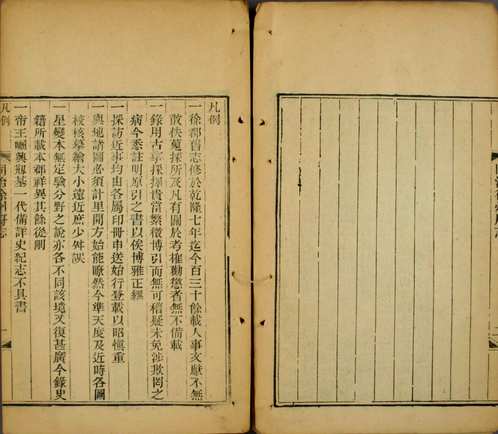 凡例
一徐郡舊志修於乾隆七年迄今百三十餘載人事文獻不無
散佚蒐採所及凡有關於考推勸懲者無不備載
一錄用古事採擇貴富繁徵博引而無可稽疑未免涉欺罔之
病今悉註明原引之書以俟博雅正繩
一採訪近事均由各屬印冊申送始行登載以昭愼重
一輿地諸圖必須計里開方始能瞭然今準天度及近時各圖
核摹繪大小遠近庶少舛誤
一星變本無定驗分野之說亦各不同該境又復甚廣今錄史
籍所載本郡祥異其餘從刪
一帝王嗣興冠基一代備詳史紀志不具書
凡例
同治徐州府志
一